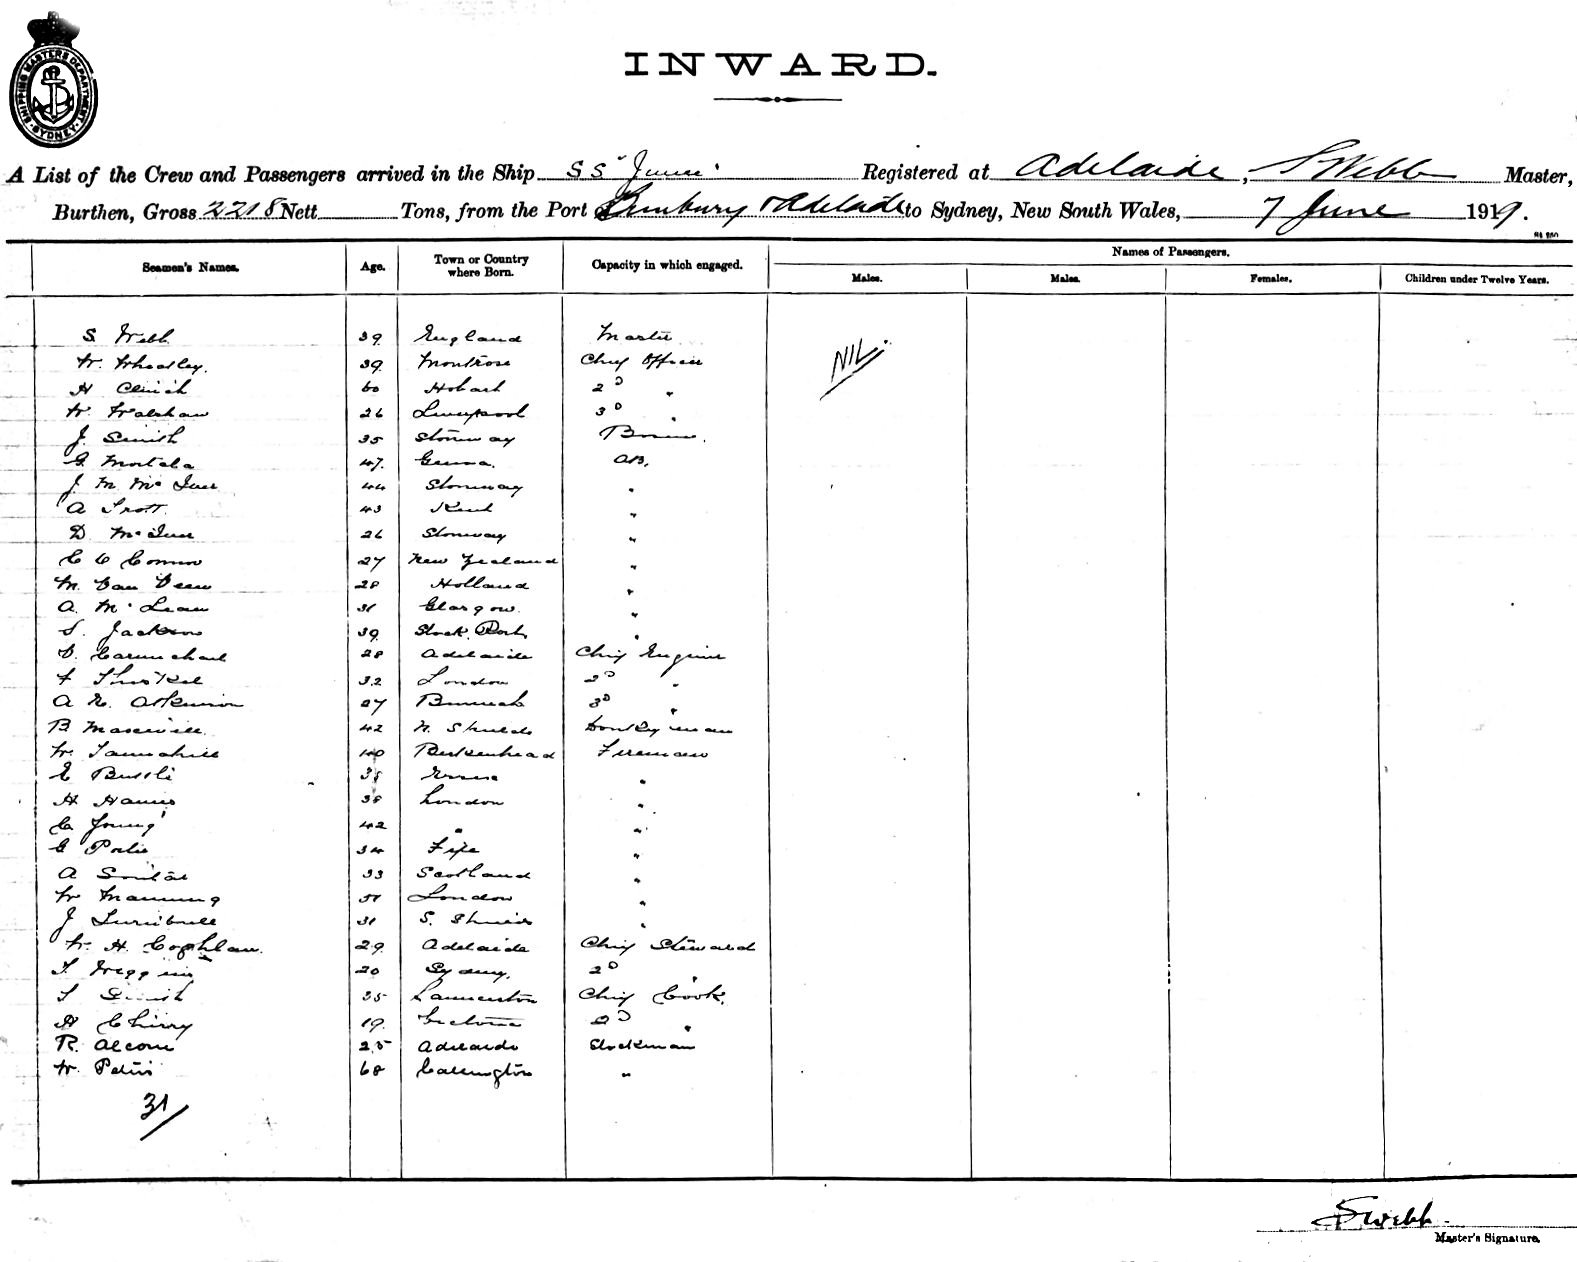 SHIPPING MASTERS DEPARTMENT SYDNEY
INWARD.
A List of the Crew and Passengers arrived in the Ship SS Registered at Adelaide, S Webb Master,
Burthen, Gross 2218 Nett Tons, from the Port Bunbury & Adelaide to Sydney, New South Wales, 7 June 1919.
Names of Passengers.
Seamen's Names. Age. Town or Country where Born. Capacity in which engaged. Males. Males. Females. Children under Twelve Years.
S. Webb 39 England Master NIL
W. Wheatley. 39 Montrose Chief Officer
H 60 Hobart 2D "
W. Walshaw 26 Liverpool 3D "
J. Smith 35 Stornway
G. 47. Genoa. AB.
J M Mc 44 Stornway "
A Trott. 43 Kent "
D Mc 26 Stornway "
C O Connor 27 New Zealand "
M. Van Veen 28 Holland "
A. McLean 31 Glasgow. "
S. Jackson 39 Stock Port "
D. Carmichael 28 Adelaide Chief Engineer
F 32 London 2D "
A N. Atkinson 27 3D "
B 42 N. Shields Donkeyman
W. Tannahill 40 Birkenhead Fireman
E 38 "
H Harris 38 London "
C Young 42 " "
G Porter 34 Fife "
A Sinclair 33 Scotland "
W Manning 51 London "
J Turnbull 31 S. Shields "
W. H. Coghlan. 29 Adelaide Chief Steward
T. 20 Sydney. 2D "
T Smith 35 Launceston Chief Cook.
H Cherry 19. Victoria 2D "
R. 25 Adelaide Stockman
W. Peters 68 Carrington "
31/
S Webb.
Master's Signature.